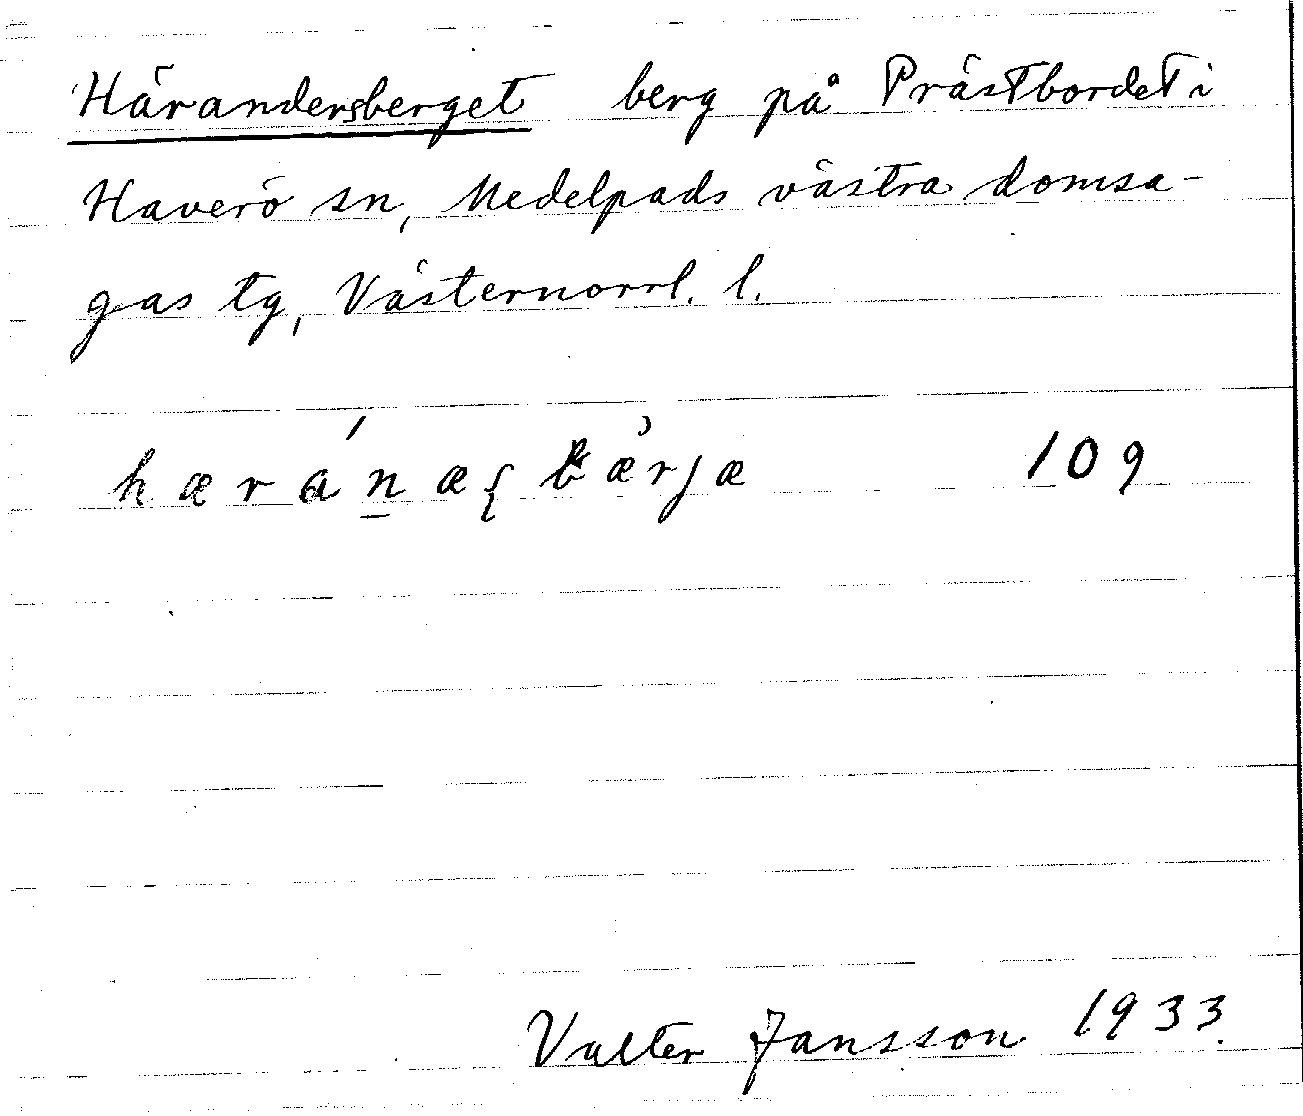 Härandersberget berg på Prästbordet i
Haverö sn, Medelpads västra domsa-
gas tg, Västernorrl. l.
109
Valter Jansson 1933.